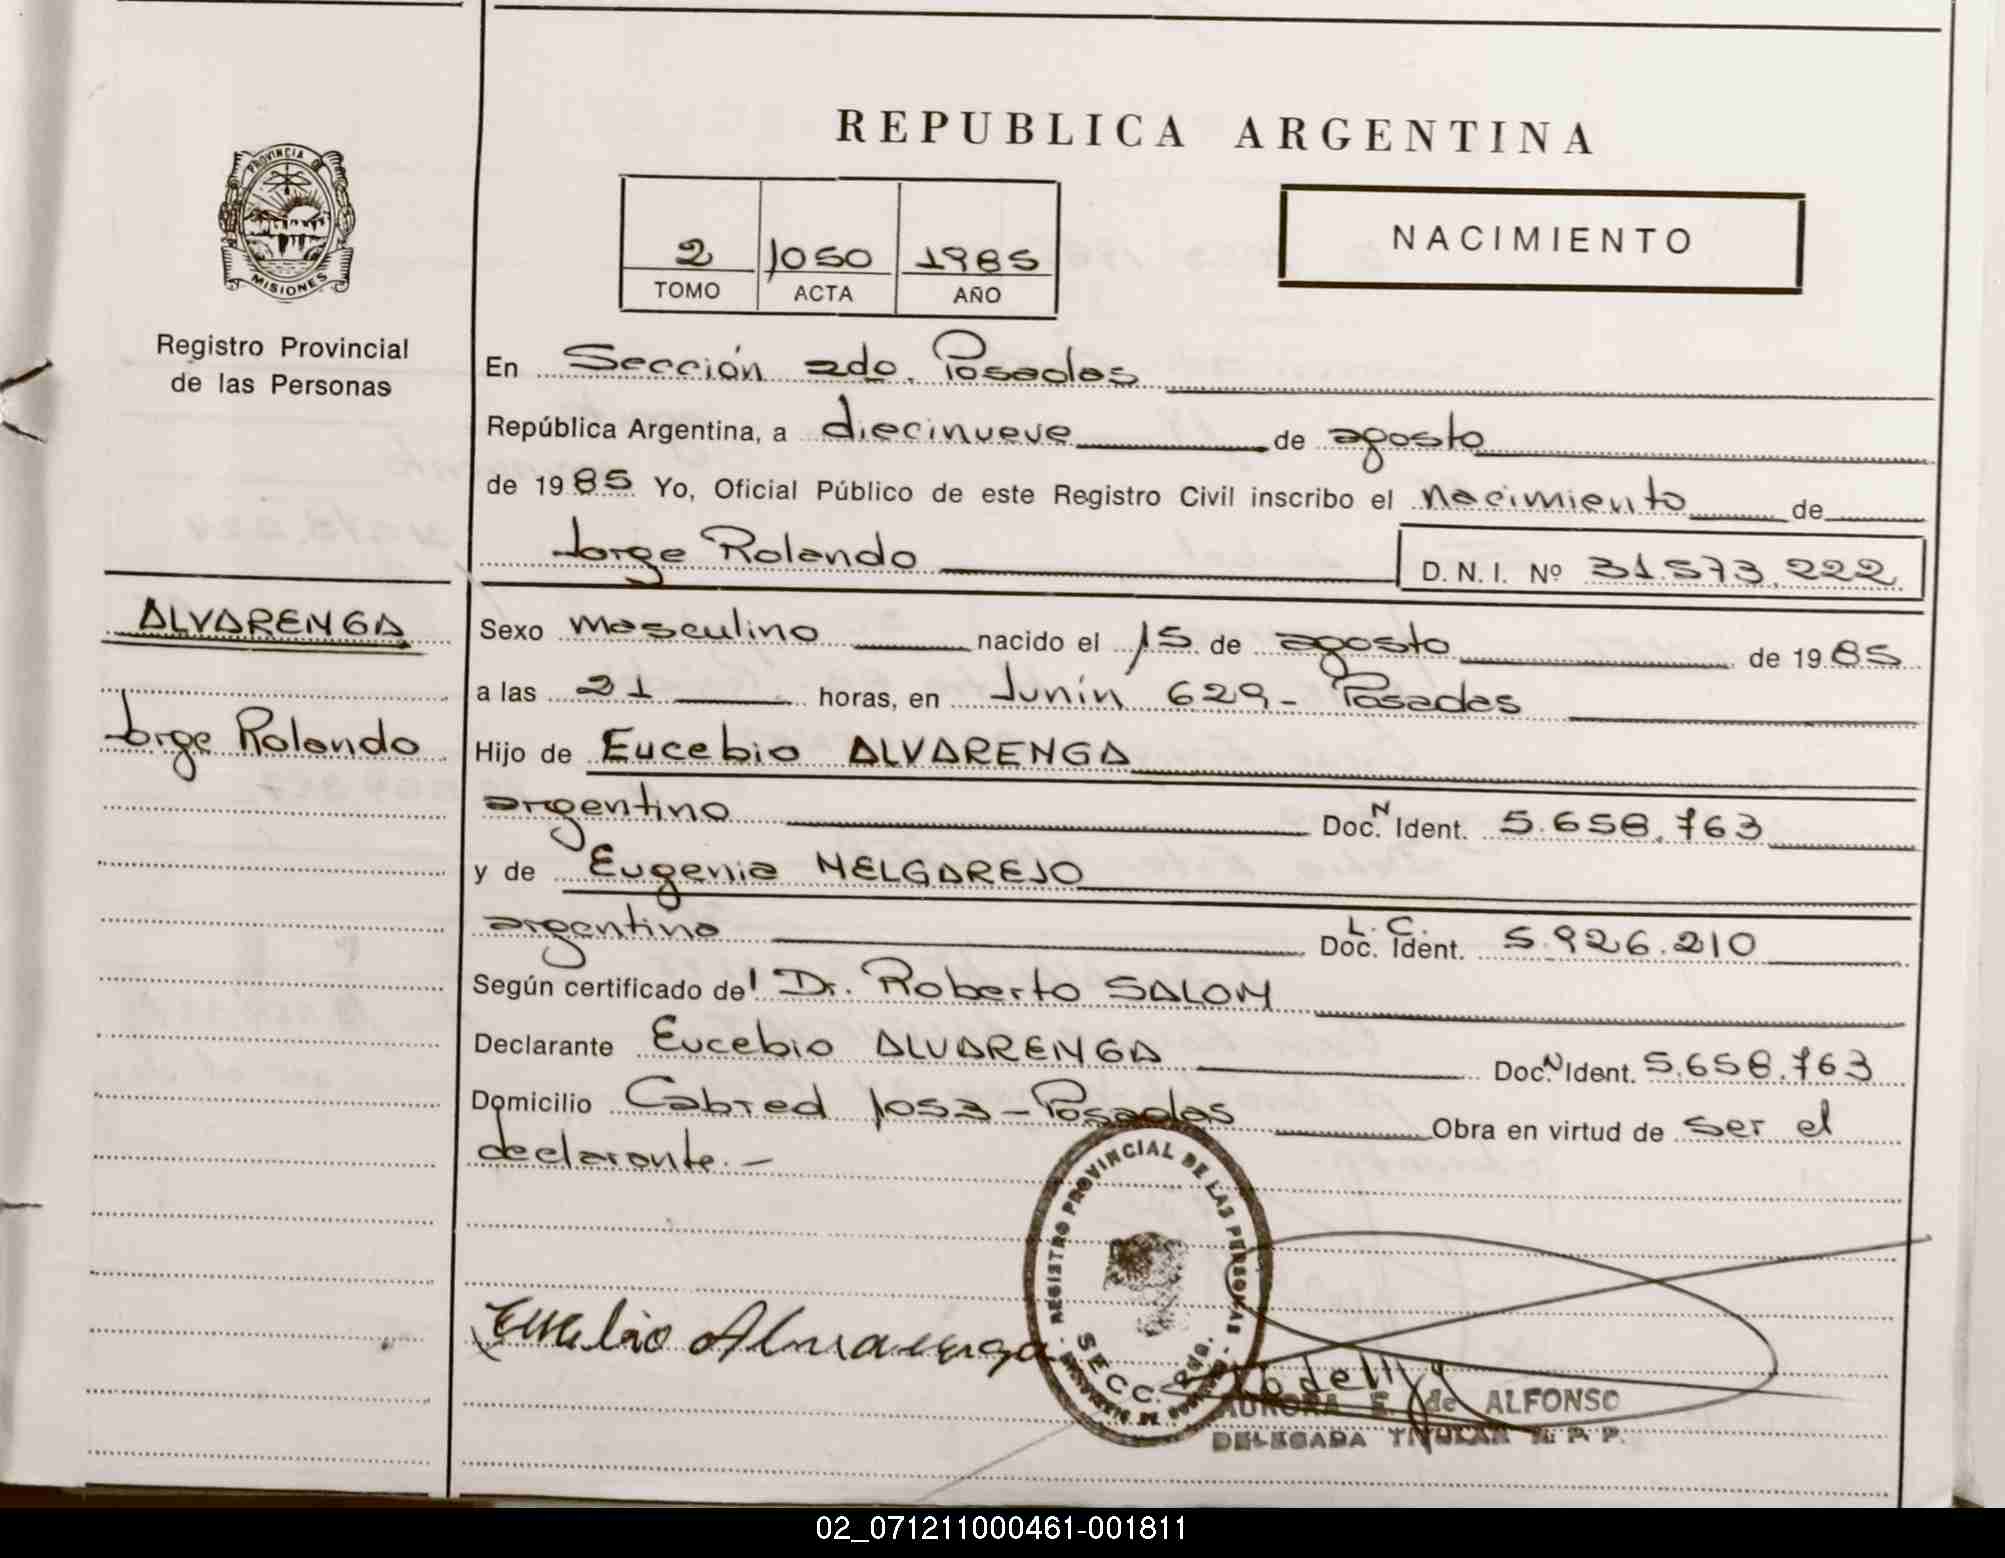 REPUBLICA ARGENTINA
PROVINCIA DE
MISIONES
Registro Provincial
de las Personas
2 1050 1985
TOMO ACTA AÑO
NACIMIENTO
En Sección 2da. Posadas
República Argentina, a diecinueve de agosto
de 1985 Yo, Oficial Público de este Registro Civil inscribo el nacimiento de
Jorge Rolando D. N. I. Nº 31.573.222
ALVARENGA
Jorge Rolando
Sexo masculino nacido el 15 de agosto de 1985
a las 21 horas, en Junín 629 - Posadas
Hijo de Eucebio ALVARENGA
argentino Doc. N Ident. 5.658.763
y de Eugenia MELGAREJO
argentina L. C. Doc. Ident. 5.926.210
Según certificado del Dr. Roberto SALOM
Declarante Eucebio ALVARENGA Doc. N Ident. 5.658.763
Domicilio Cabred 1053 - Posadas Obra en virtud de ser el
declarante. -
REGISTRO PROVINCIAL DE LAS PERSONAS
SECC. 2da.
Eucebio Alvarenga
AURORA E. de ALFONSO
DELEGADA TITULAR R. P. P.
02_071211000461-001811